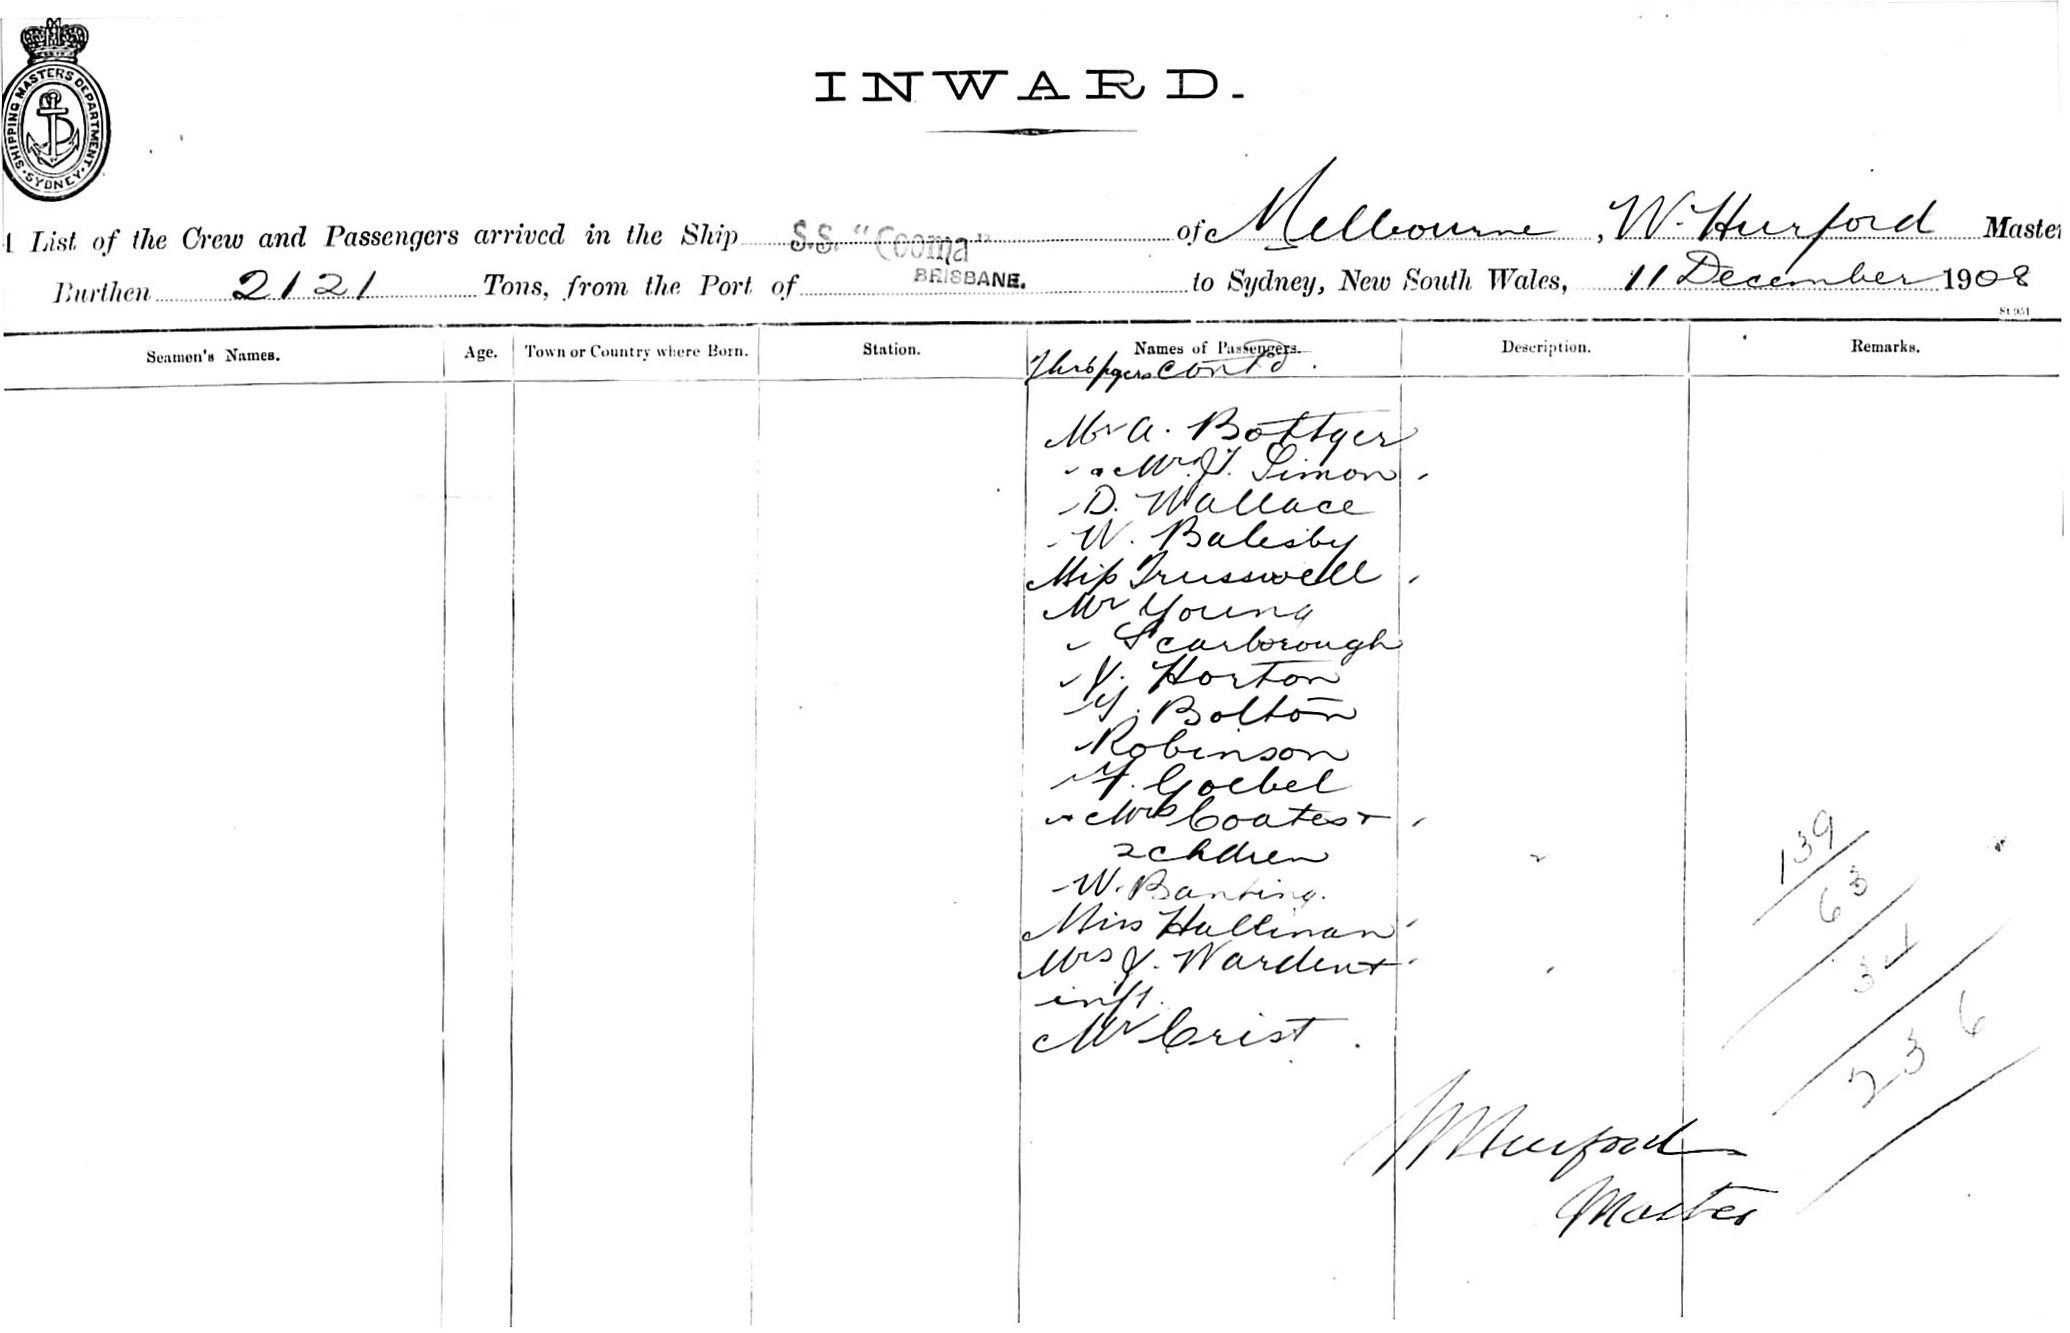 SHIPPING MASTERS DEPARTMENT. SYDNEY.
INWARD.
List of the Crew and Passengers arrived in the Ship S.S. "Cooma" of Melbourne, W. Hurford Master
Burthen 2121 Tons, from the Port of BRISBANE. to Sydney, New South Wales, 11 December 1908
Seamen's Names. Age. Town or Country where Born. Station. Names of Passengers. Description. Remarks.
Thro' pgers contd.
Mr A. Bottger
" " Mrs J. Simon
" D. Wallace
" W. Balesby
Miss Trusswell
Mr Young
" Scarborough
" J. Horton
" G. Bolton
" Robinson
" F. Goebel
" " Mrs Coates +
2 chdren
" W. Banting.
Miss Hallinan
Mrs J. Warden +
inft.
Mr Crist
139
63
34
236
W Hurford
Master